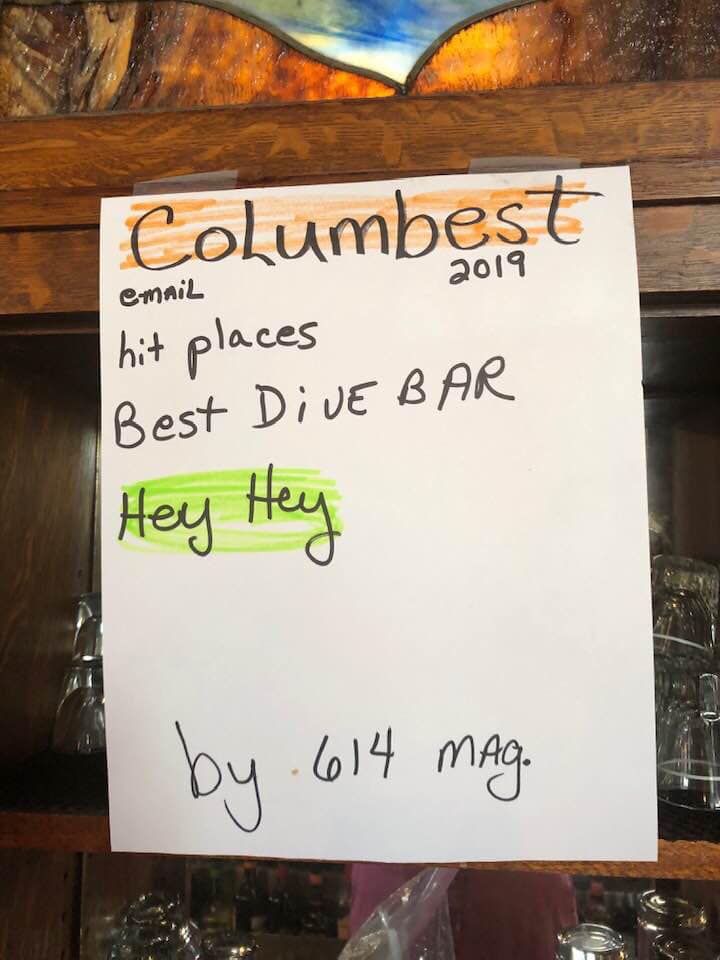 Columbest
2019
email
hit places
Best DIVE BAR
Hey Hey
by 614 mag.